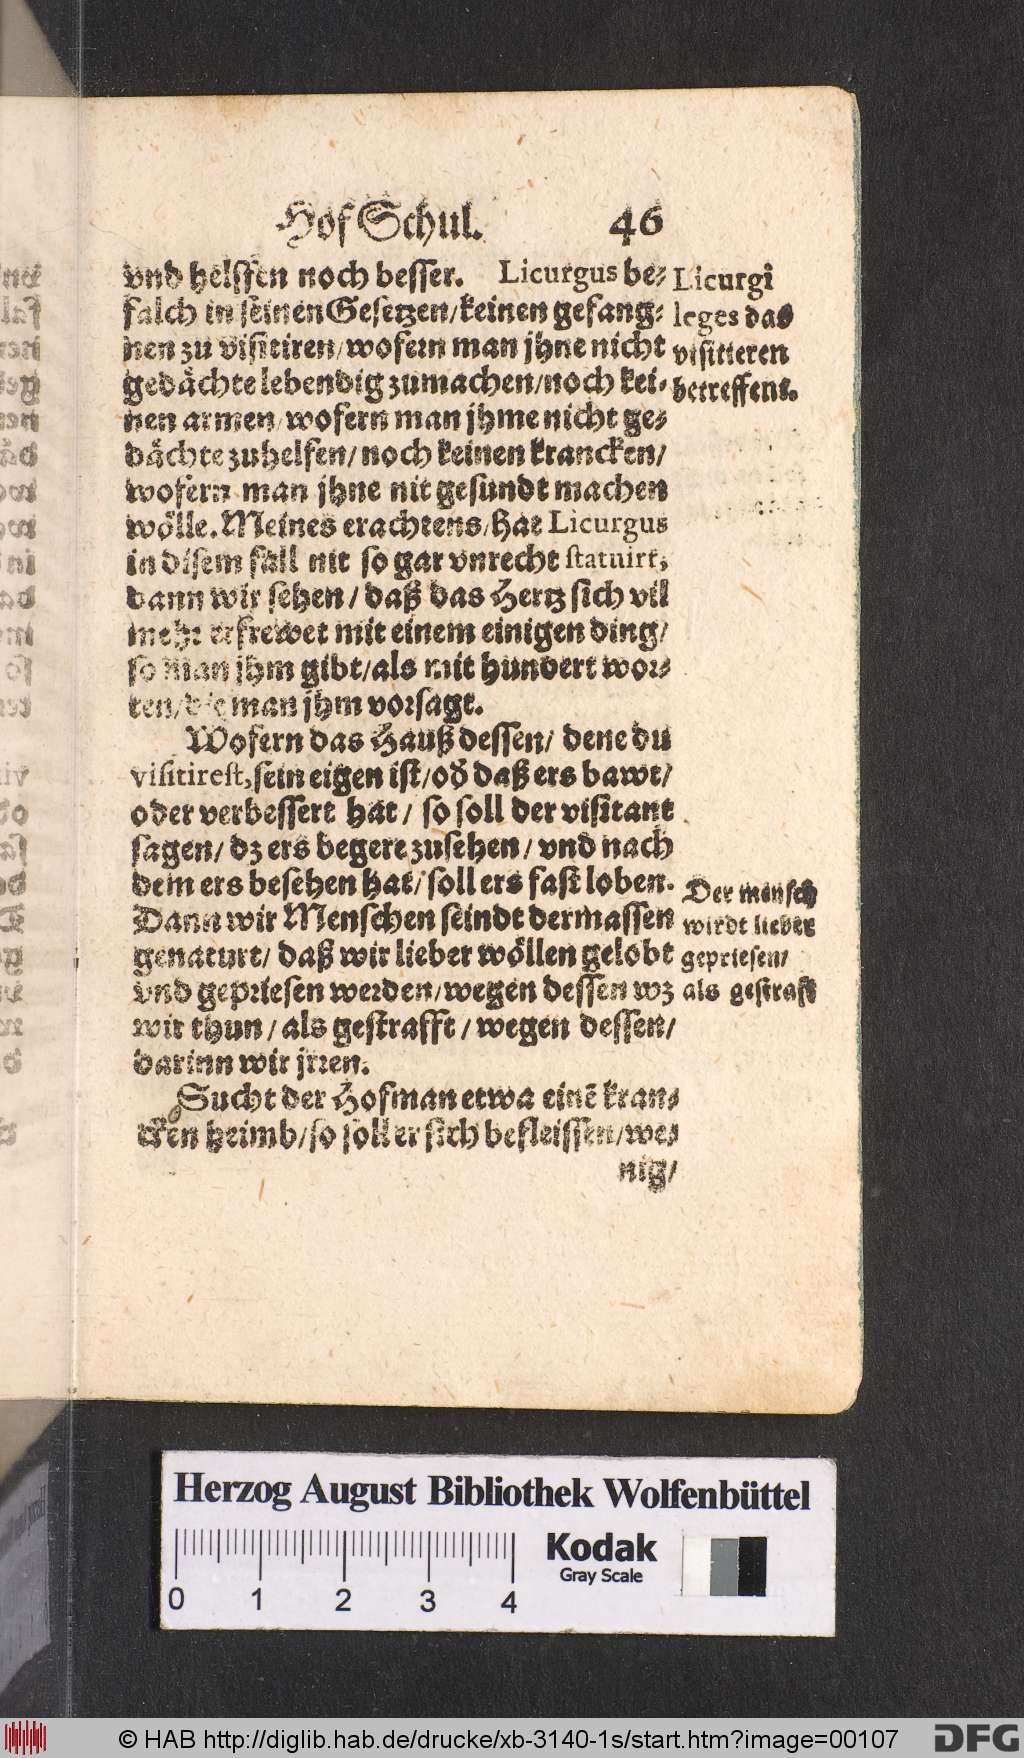 Hof Schul. 46
vnd helffen noch besser. Licurgus be-
falch in seinen Gesetzen/keinen gefang-
nen zu visitiren/wofern man jhne nicht
gedächte lebendig zumachen/noch kei-
nen armen/wofern man jhme nicht ge-
dächte zuhelfen/noch keinen krancken/
wofern man jhne nit gesundt machen
wölle. Meines erachtens/hat Licurgus
in disem fall nit so gar vnrecht statuirt,
dann wir sehen/daß das Hertz sich vil
mehr erfrewet mit einem einigen ding/
so man jhm gibt/als mit hundert wor-
ten/die man jhm vorsagt.
Wofern das Hauß dessen/dene du
visitirest, sein eigen ist/oď daß ers bawt/
oder verbessert hat/so soll der visitant
sagen/dz ers begere zusehen/vnd nach
dem ers besehen hat/soll ers fast loben.
Dann wir Menschen seindt dermassen
genaturt/daß wir lieber wöllen gelobt
vnd gepriesen werden/wegen dessen wz
wir thun/als gestrafft/wegen dessen/
darinn wir jrren.
Sucht der Hofman etwa einē kran-
cken heimb/so soll er sich befleissen/we-
nig/
Licurgi
leges das
visitieren
betreffent.
Der mensch
wirdt lieber
gepriesen/
als gestraft
Herzog August Bibliothek Wolfenbüttel
Kodak
Gray Scale
0 1 2 3 4
© HAB http://diglib.hab.de/drucke/xb-3140-1s/start.htm?image=00107
DFG